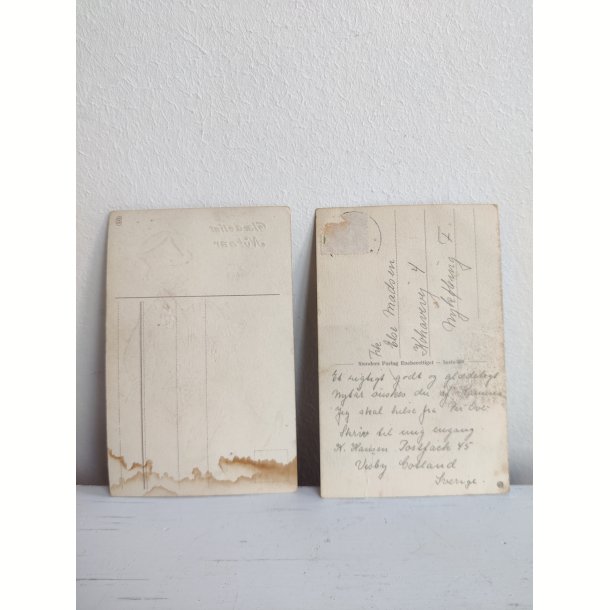 Glædeligt
Nytaar
Frk
Else Madsen
Kohavevej 4
Nykøbing F.
Stenders Forlag Eneberettiget
Et rigtigt godt og glædeligt
nytår ønskes du af
Jeg skal hilse fra
Skriv til mig engang.
K. Hansen Postfack 45
Visby Gotland
Sverige.